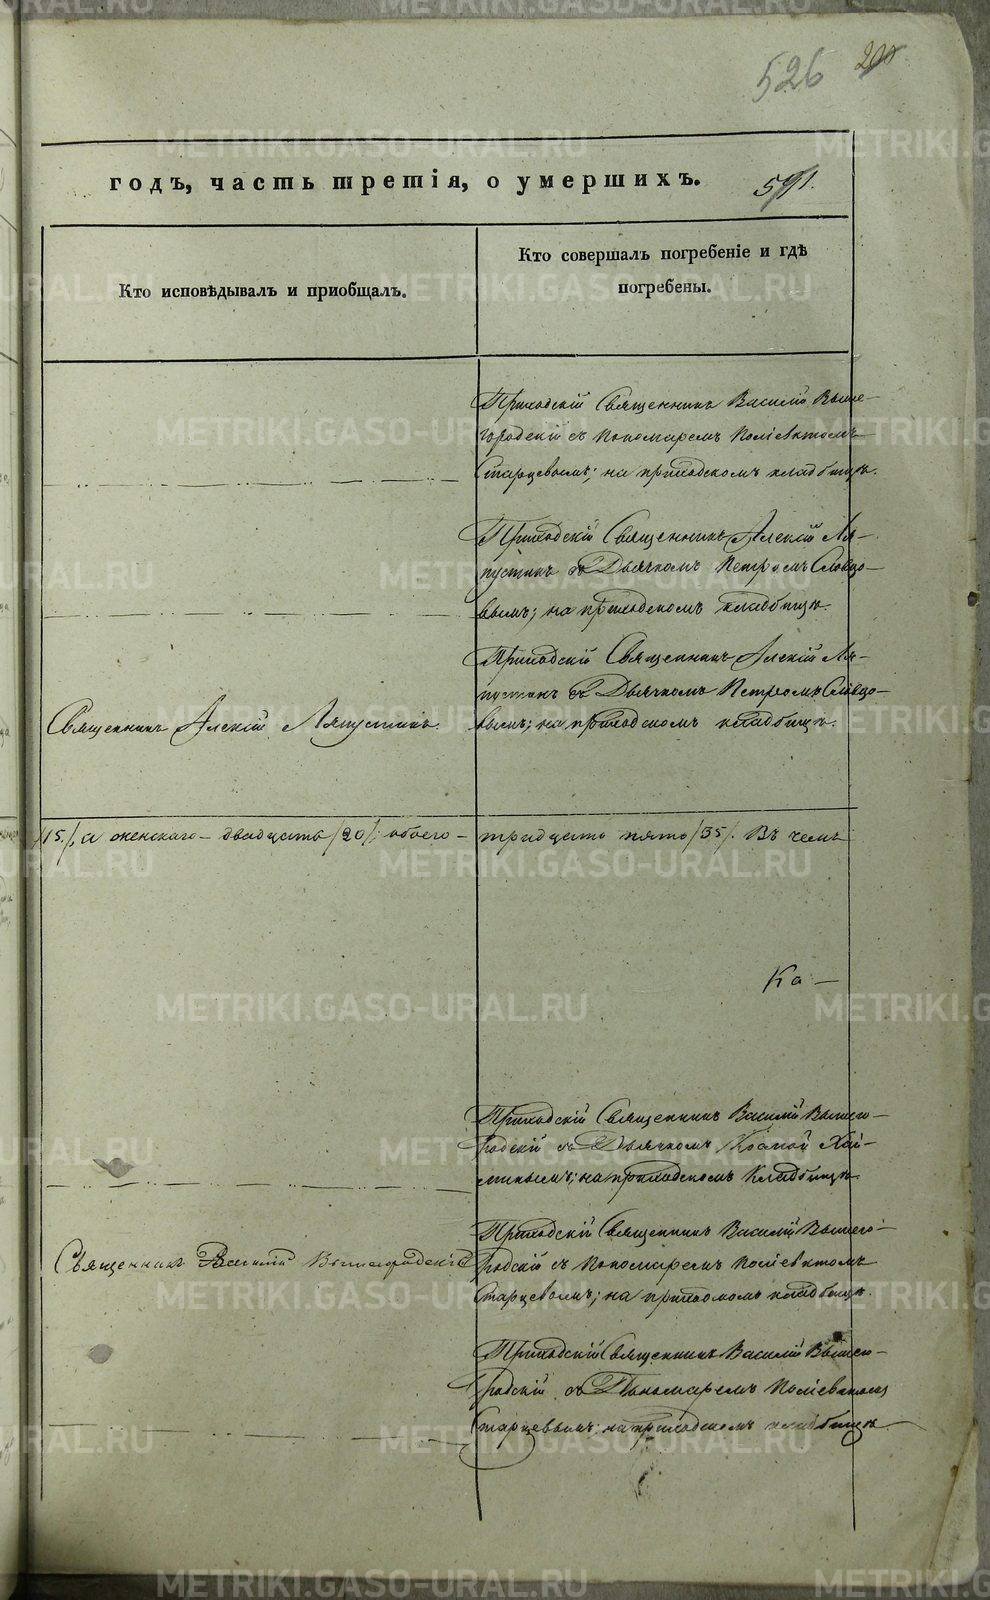 526 200
годъ, часть третія, о умершихъ. 591.
Кто исповѣдывалъ и приобщалъ.
Кто совершалъ погребеніе и гдѣ
погребены.
Приходскій Священникъ Василій Выше-
городскій съ Пономаремъ Поліевктомъ
Старцевымъ; на приходскомъ кладбищѣ.
Приходскій Священникъ Алексій Ля-
пустинъ съ Дьячкомъ Петромъ Словцо-
вымъ; на приходскомъ кладбищѣ.
Священникъ Алексій Ляпустинъ.
Приходскій Священникъ Алексій Ля-
пустинъ съ Дьячкомъ Петромъ Словцо-
вымъ; на приходскомъ кладбищѣ.
/15./, а женскаго – двадцать /20/; обоего – тридцать пять /35/. Въ чемъ
Ка –
Приходскій Священникъ Василій Вышего-
родскій съ Дьячкомъ
на приходскомъ кладбищѣ.
Священникъ Василій Вышегородскій
Приходскій Священникъ Василій Вышего-
родскій съ Пономаремъ Поліевктомъ
Старцевымъ; на приходскомъ кладбищѣ.
Приходскій Священникъ Василій Вышего-
родскій съ Пономаремъ Поліевктомъ
Старцевымъ; на приходскомъ кладбищѣ.
METRIKI.GASO-URAL.RU